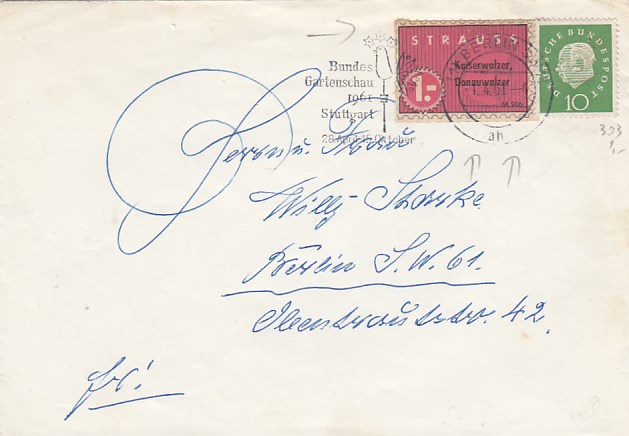 STRAUSS
Kaiserwalzer,
Donauwalzer
1.-
M 916
DEUTSCHE BUNDESPOST
10
BERLIN SW
1.4.61
ah
Bundes
Gartenschau
1961
Stuttgart
28. April-15. Oktober
303
1,-
Herrn u. Frau
Willy Starke
Berlin S.W. 61.
Obentrautstr. 42.
fr!